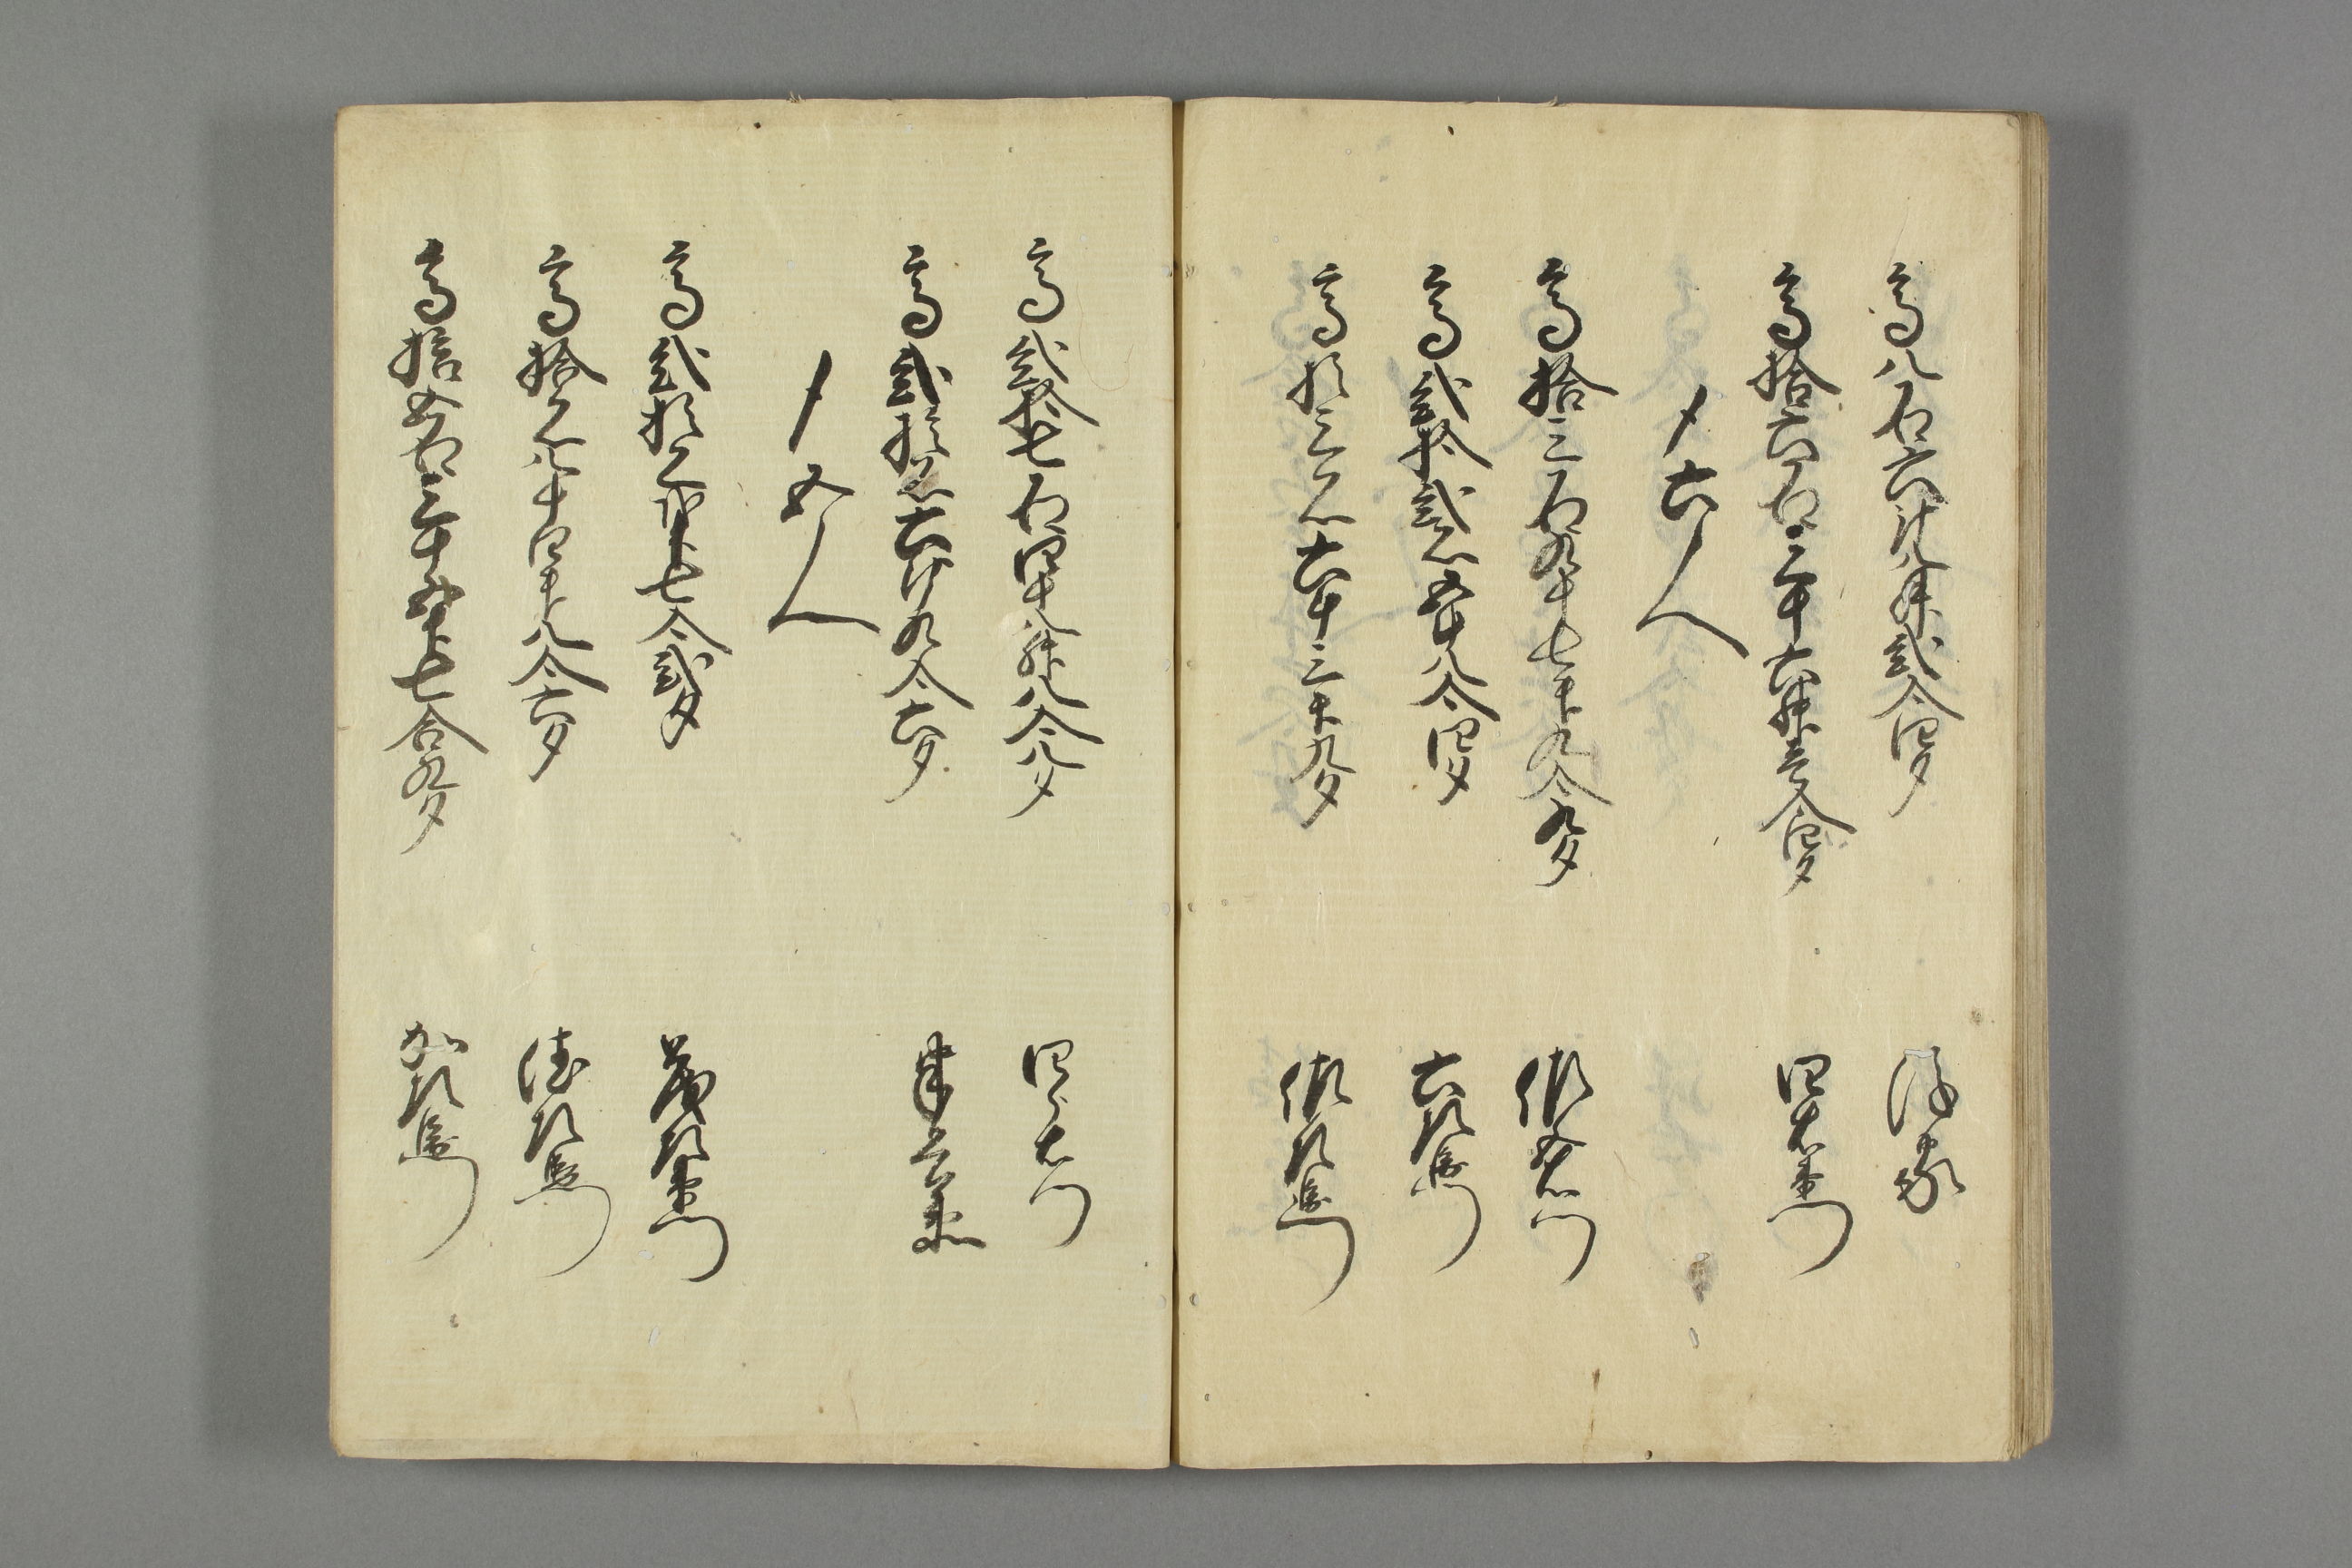 高八石六斗八升弐合四夕
高拾六石三斗六升壱合四夕 四右衛門
〆六人
高拾三石九斗七升九合九夕
高弐拾弐石五斗八合四夕 六左衛門
高拾三石六斗三升九夕 佐左衛門
高弐拾七石四斗八升八合八夕
高弐拾石六斗九合六夕
〆五人
高弐拾石弐斗七合弐夕 茂左衛門
高拾石八斗四升八合六夕 徳左衛門
高拾五石三斗五升七合九夕 加左衛門